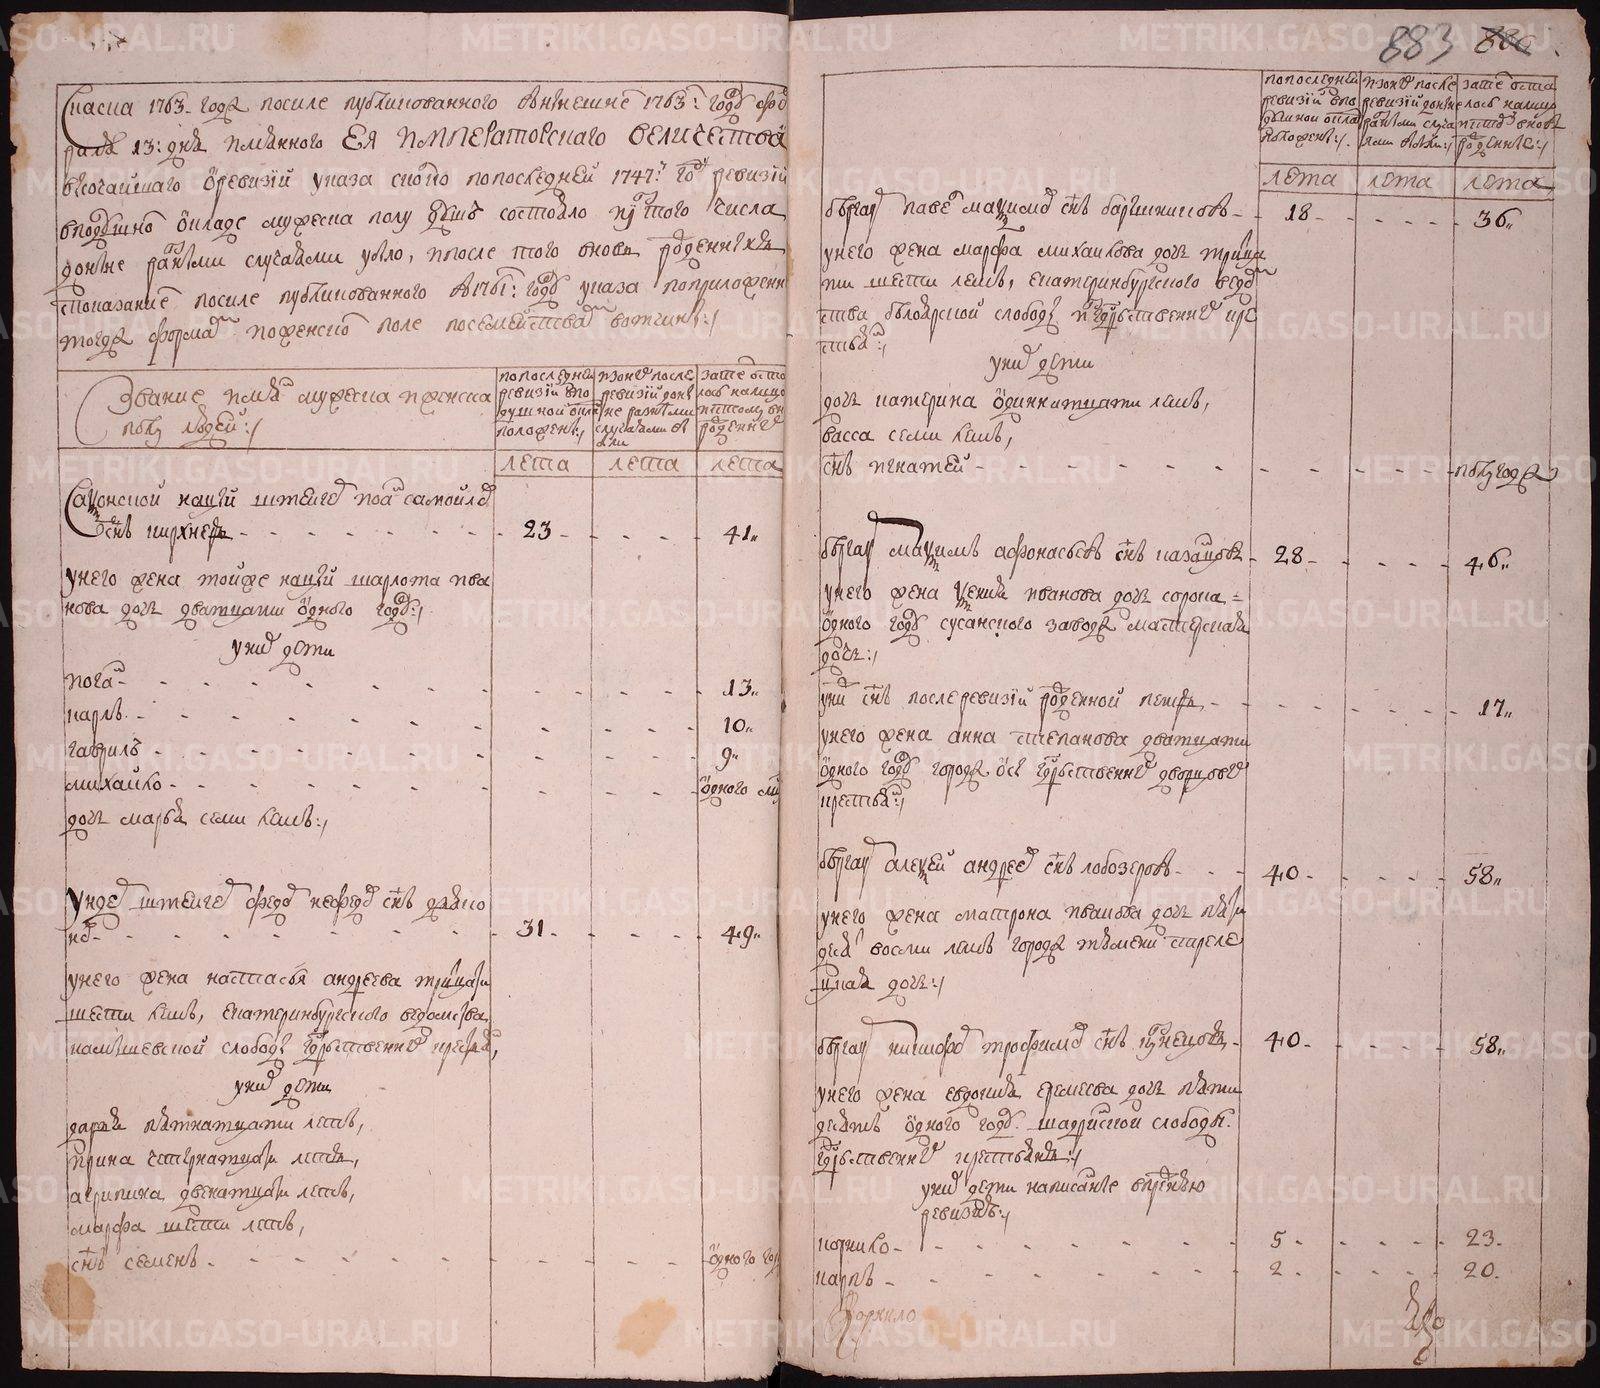 883
Сказка 1763 году после публикованного в нынешнем 1763 году фев
раля 13 дня имянного ЕЯ ИМПЕРАТОРСКАГО ВЕЛИЧЕСТВА
высочайшаго о ревизии указа сколко по последней 1747 году ревизии
в подушно окладе мужеска полу душ состояло и с того числа
доныне разными случаями убыло, и после того вновь рожденных
с показание после публикованного в 1761 году указа по приложен
тогда форма и о женско поле по семейства вотчины
Звание и имя мужеска и женска
полу людей
по последней
ревизии в по
душной окла
положен
из оных после
ревизии доны
не разными
случаями вы
были
зате оста
лось налицо
и потому вн
рожденны
лета лета лета
Саксонской нации штейге иоган самойло
снъ кирхнеръ 23 41
у него жена тойже нации шарлота ива
нова дочь дватцати одного году
у них дети
иоган 13
карлъ 10
гаврилъ 9
михайло одного
дочь марья семи летъ
Унде штейге федо нефедо снъ
31 49
у него жена настасья андреева трицати
шести летъ, екатеринбургского ведомства
камышевской слободы гдрственны крестья,
у них дети
дарья пятнатцати летъ,
ирина четырнатцати летъ,
агрипина двенатцати летъ,
марфа шести летъ,
снъ семенъ одного го
по последней
ревизии в по
душной окла
положен
из оны после
ревизии доны
разными случа
ями выбыли
зате оста
лось налицо
и вновь
рожденные
лета лета лета
бергау паве максимо снъ баришниковъ 18 36
у него жена марфа михаилова дочь трицa
ти шести летъ, екатеринбургского ведом
ства белоярской слободы гдрственны кре
стья
у них дети
дочь катерина одиннатцати летъ,
васса семи летъ,
снъ игнатей полугоду
бергау максимъ афонасьевъ снъ казанцовъ 28 46
у него жена ксения иванова дочь сорока
одного году сусанского заводу мастерская
дочь
у ни снъ после ревизии рожденной петръ 17
у него жена анна степанова дватцати
одного году города осы гдрственны дворцовы
крестья
бергау алексей андрее снъ лобозеровъ 40 58
у него жена матрона иванова дочь пяти
деся восми летъ города тюмени стреле
цкая дочь
бергау никифо трофимо снъ кузнецовъ 40 58
у него жена евдокия еремеева дочь пяти
десятъ одного году шадринской слободы
гдрственны крестьянъ
у них дети написанные в прежнюю
ревизию
корнило 5 23
карпъ 2 20
Корнило